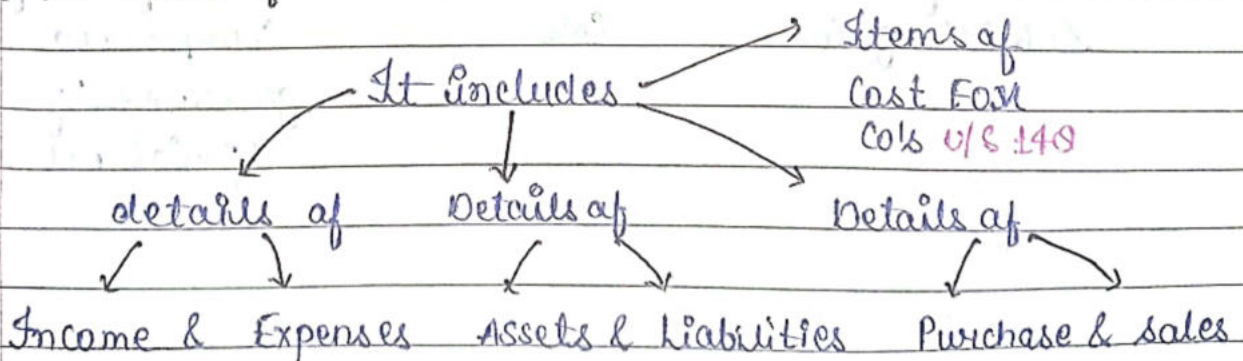 Items of
It includes
Cost For
Co's U/S 148
details of Details of Details of
Income & Expenses Assets & Liabilities Purchase & Sales